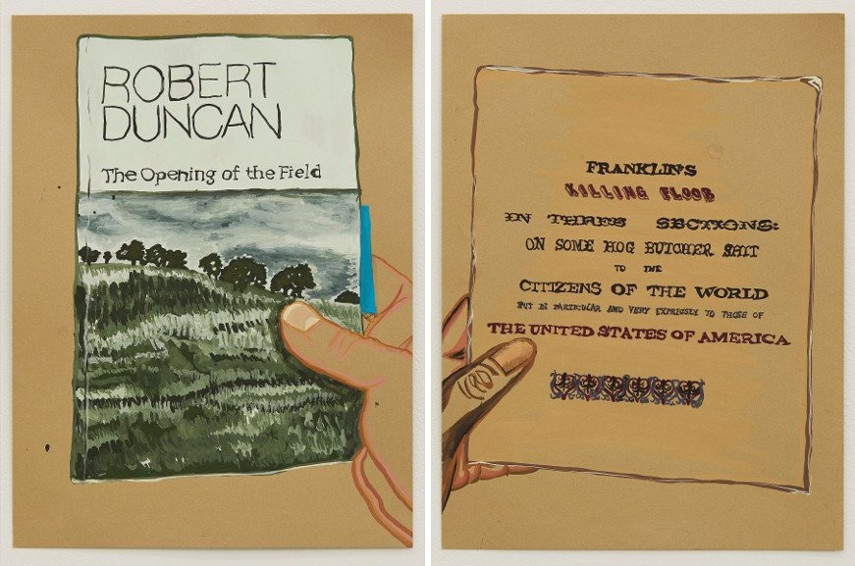 ROBERT
DUNCAN
The Opening of the Field
FRANKLIN'S
KILLING FLOOR
IN THREE SECTIONS:
ON SOME HOG BUTCHER SHIT
TO THE
CITIZENS OF THE WORLD
BUT IN PARTICULAR AND VERY EXPRESSLY TO THOSE OF
THE UNITED STATES OF AMERICA